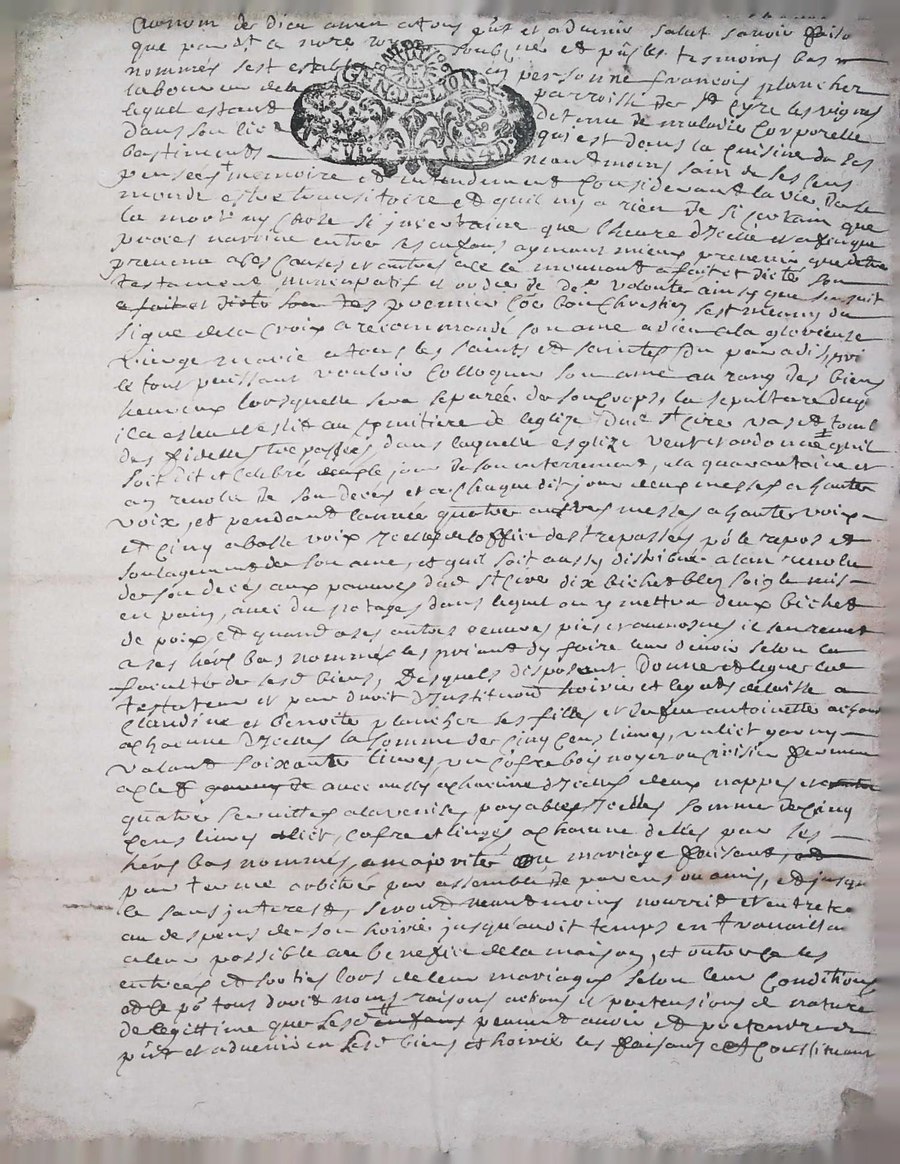 Au nom de dieu amen a tous pnt et advenir salut savoir faiso
que pardt a notre soubnè et pnts les tesmoins bas n
nommés sest estably en personne francois plancher
laboureur de la parroisse de St Cyre les vignes
lequel estant detenu de maladie corporelle
dans son lict qui est dans la cuisine de ses
bastiments neantmoins sain de ses sens
pensées memoire et entendement Considerant la vie de le
monde estre transitoire et quil ny a rien de si certain que
la mort ny chose si incertaine que lheure dicelle et afin que
proces narrive entre ses enfans aymant mieux prevenir que destre
prevenu a ses causes et autres a ce le mouvant a fait et dicté son
testament nuncupatif et ordre de de re volonté ainsy que sensuit
a fait et dicté son tes premier Coe bon Chrestien sest muny du
signe de la Croix a recommandé son ame a dieu a la glorieuse
Vierge marie a tous les saints et saintes du paradis, prié
le tout puissant vouloir Colloquer son ame au rang des biens
heureux lorsquelle sera separée de son corps, la sepulture duql
il a esleu et eslit au cimitiere de leglize dud St Cire vas et tombe
des fidelles trepassés, dans laquelle esglize veut et ordonne quil
soit dit et celebré jour de son enterrement, a la quarantaine et
an revolu de son deces et a chaque dit jour deux messes a hauter
voix, et pendant lannée quatre autres messes a hauter voix
et cinq a basse voix de loffice des trepassés pô le repos et
soulagement de son ame, et quil soit aussy distribué a lan revolu
de son deces aux pauvres dud St Cire dix bichet bled soigle mis
en pain, avec du potages dans lequel on y mettra deux bichet
de poix, et quand a ses autres oeuvres pies et aumosnes il sen remet
a ses hérs bas nommés les priant dy faire leur devoir selon la
faculté de sesd biens, desquels disposant donne et legue led
testateur et par droit dinstitution hoirie et legats delaisse a
Claudine et Benoite plancher ses filles et de feu antoinette
a chacune dicelles la somme de cinq cens livres, un lict garny
valant soixante livres, un cofre bois noyer ou cerisier fermant
a clef garny de avec aussy a chacune dicelles deux nappes et
quatre serviettes a la venise, payables icelles somme de cinq
cens livres lict, cofre et linges a chacune delles par ses
hérs bas nommés, a majorité ou mariage faisant,
par terme arbitré par assemblé de parens ou amis, et jusqu
la sans interest, seront neantmoins nourrit et entrete
au despens de son hoirie jusquaudit temps en travaillan
a leur possible au benefice de la maison, et outre ce les
entrées et sorties lors de leur mariages selon leur Conditions
et ce pô tous droit noms raisons actions et pretensions de nature
de legittime que lesd enfans peuvent avoir et pretendre
pnt et advenir en lesd biens et hoirie les faisant et Constituant